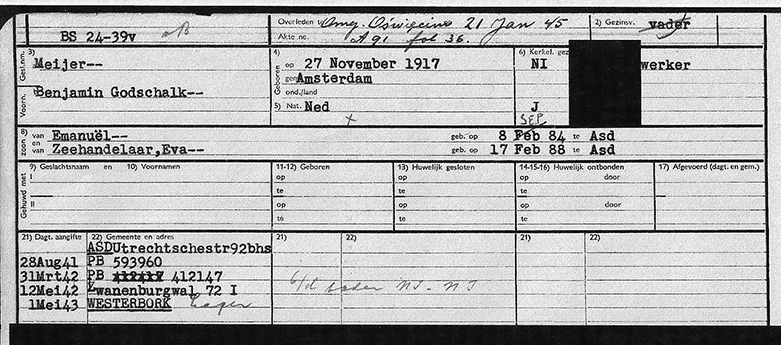 BS 24-39v
Overleden te Omg. Oświęcim 21 Jan 45
Akte no. A 91 fol 36.
2) Gezinsv. vader
3) Gesl.nm. Meijer--
Voorn. Benjamin Godschalk--
4) Geboren op 27 November 1917
gem Amsterdam
ond./land
5) Nat. Ned
6) Kerkel. gez
NI werker
J
SEP
8) zoon van Emanuël-- geb. op 8 Feb 84 te Asd
en van Zeehandelaar,Eva-- geb. op 17 Feb 88 te Asd
Gehuwd met 9) Geslachtsnaam en 10) Voornamen 11-12) Geboren 13) Huwelijk gesloten 14-15-16) Huwelijk ontbonden 17) Afgevoerd (dagt. en gem.)
I op op op door
te te te
II op op op door
te te te
21) Dagt. aangifte 22) Gemeente en adres 21) 22) 21) 22)
ASDUtrechtschestr92bhs
28Aug41 PB 593960
31Mrt42 PB 412147
12Mei42 Zwanenburgwal 72 I
1Mei43 WESTERBORK Lager
NI - NI